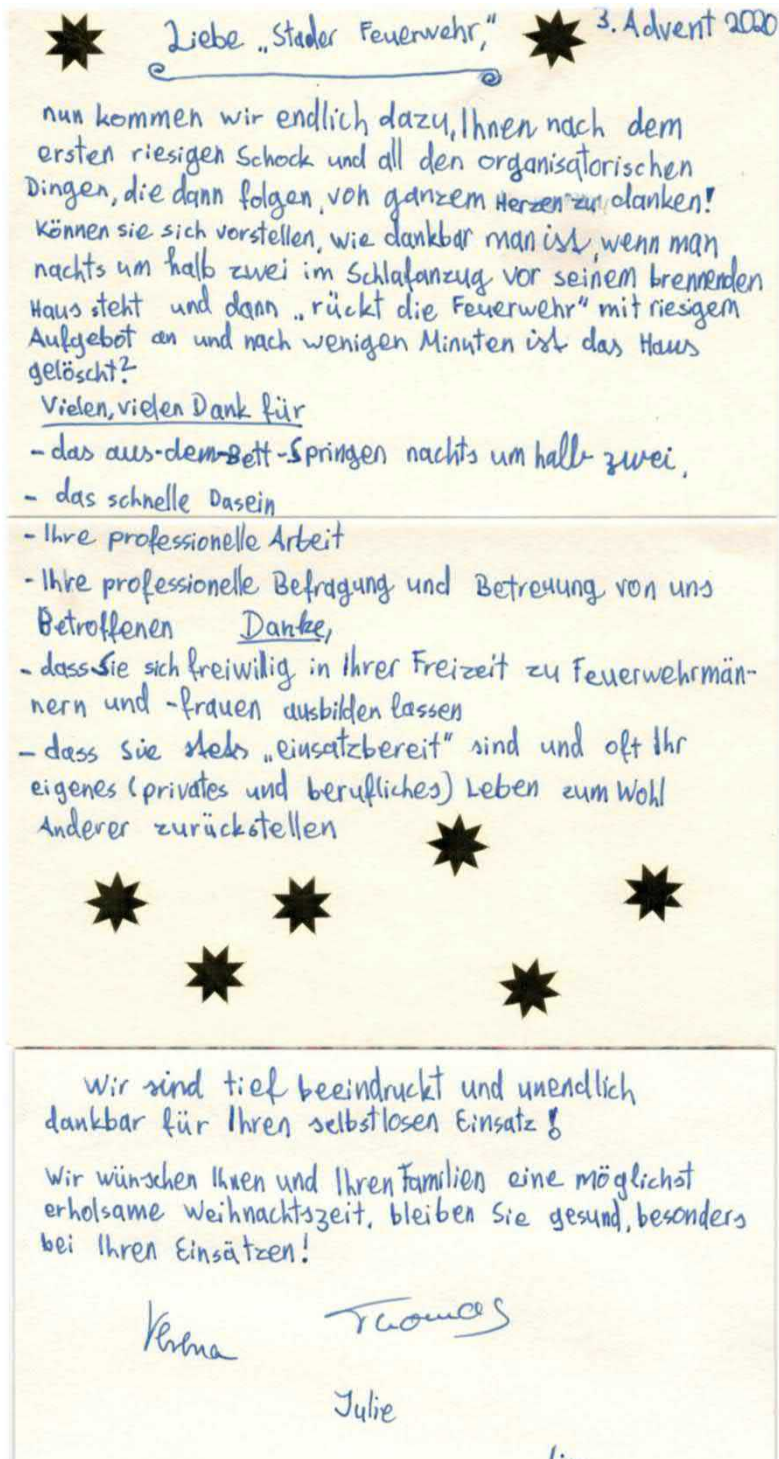 3. Advent 2020
Liebe „Stader Feuerwehr,"
nun kommen wir endlich dazu, Ihnen nach dem
ersten riesigen Schock und all den organisatorischen
Dingen, die dann folgen, von ganzem Herzen zu danken!
Können sie sich vorstellen, wie dankbar man ist, wenn man
nachts um halb zwei im Schlafanzug vor seinem brennenden
Haus steht und dann „rückt die Feuerwehr" mit riesigem
Aufgebot an und nach wenigen Minuten ist das Haus
gelöscht?
Vielen, vielen Dank für
- das aus-dem-Bett-Springen nachts um halb zwei,
- das schnelle Dasein
- Ihre professionelle Arbeit
- Ihre professionelle Befragung und Betreuung von uns
Betroffenen Danke,
- dass Sie sich freiwillig in Ihrer Freizeit zu Feuerwehrmän-
nern und -frauen ausbilden lassen
- dass Sie stets „einsatzbereit" sind und oft Ihr
eigenes (privates und berufliches) Leben zum Wohl
Anderer zurückstellen
Wir sind tief beeindruckt und unendlich
dankbar für Ihren selbstlosen Einsatz!
Wir wünschen Ihnen und Ihren Familien eine möglichst
erholsame Weihnachtszeit, bleiben Sie gesund, besonders
bei Ihren Einsätzen!
Verena Thomas
Julie